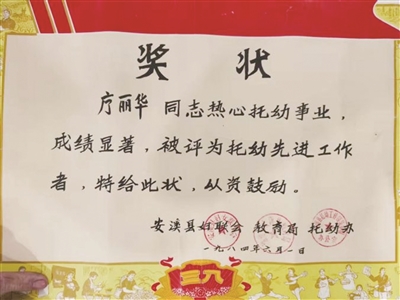 奖 状
丽华 同志热心托幼事业，
成绩显著，被评为托幼先进工作
者，特给此状，以资鼓励。
安溪县妇联会 教育局 托幼办
一九八四年六月一日
三八